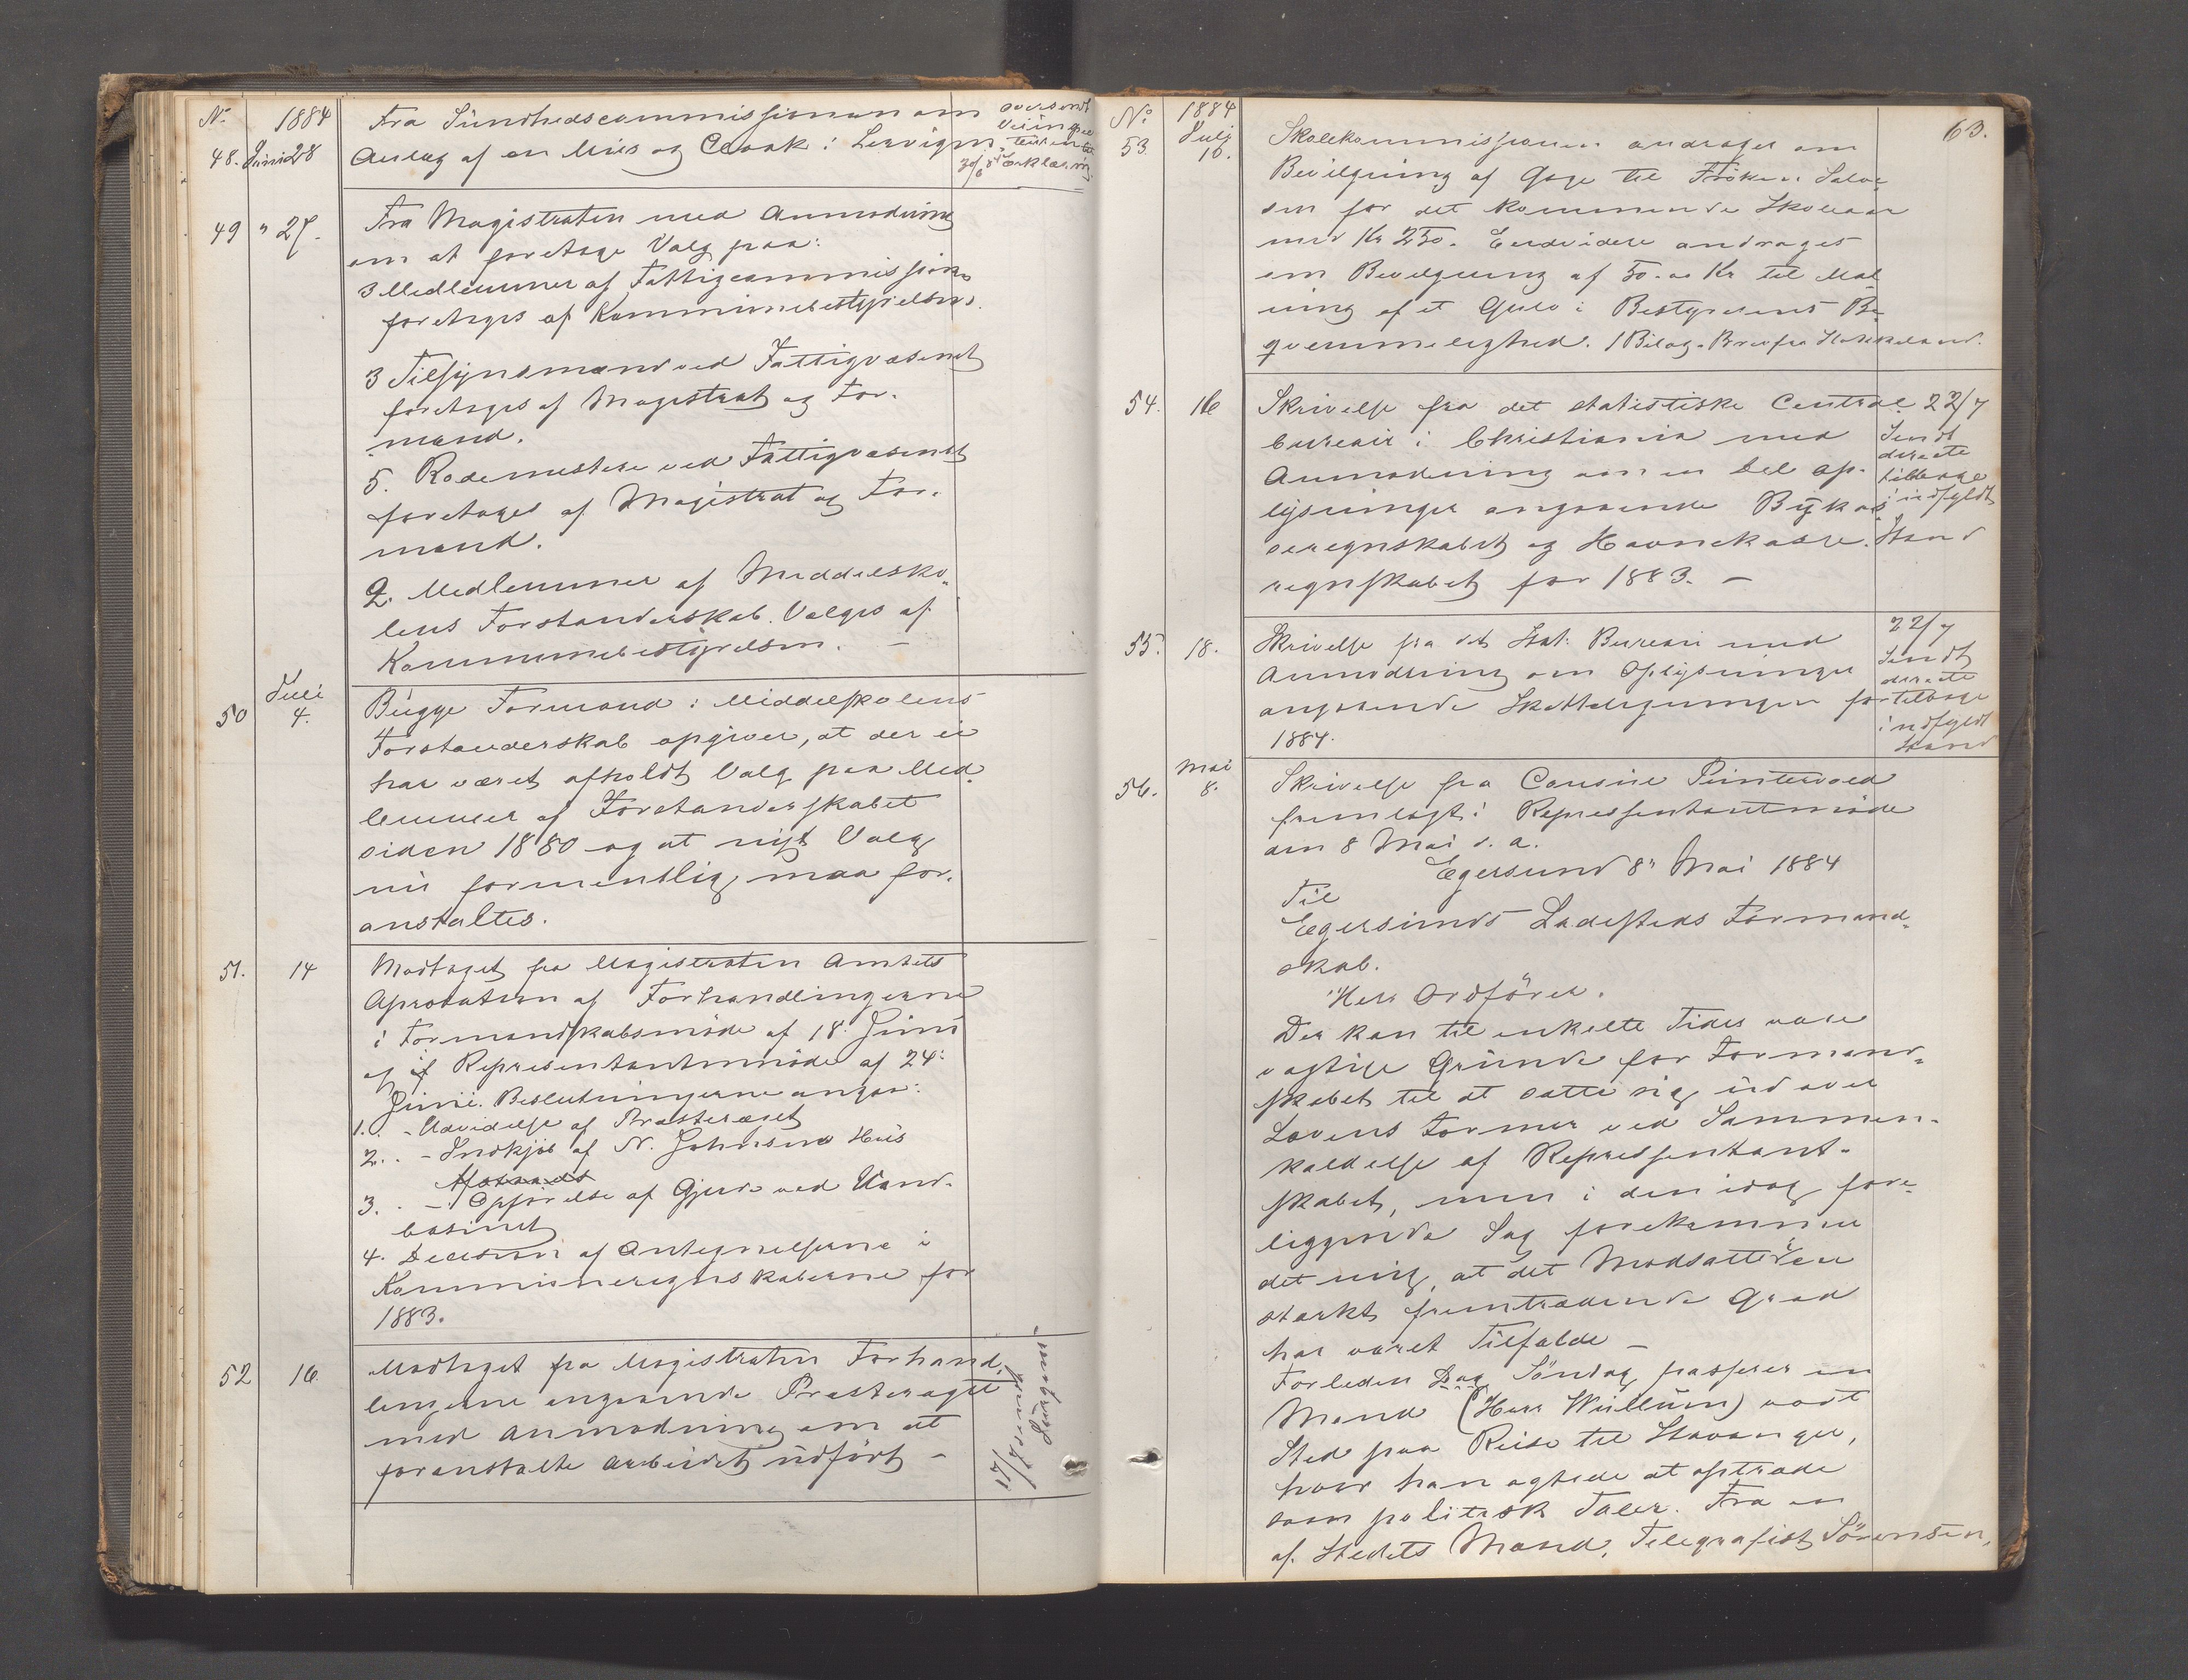 No 1884
48. Juni 28 Fra Sundhedscommissionen om
Anlæg af en Mur og Cloak i Lervigen.
oversendt
Veiinspec
teuren til
30/6 84 Erklæring
49 " 27. Fra Magistraten med Anmodning
om at foretage Valg paa:
3 Medlemmer af Fattigcommission
foretages af Kommunebestyrelsen.
3 Tilsynsmænd ved Fattigvæsenet
foretages af Magistrat og For-
mænd.
5. Rodemestere ved Fattigvæsenet
foretages af Magistrat og For-
mænd.
2. Medlemmer af Middelsko-
lens Forstanderskab. Vælges af
Kommunebestyrelsen. –
50 Juli 4. Bugge Formand i Middelskolens
Forstanderskab opgiver, at der ei
har været afholdt Valg paa Med-
lemmer af Forstanderskabet
siden 1880 og at nyt Valg
nu formentlig maa for-
anstaltes.
51. 14 Modtaget fra Magistraten Amtets
Aprobation af Forhandlingerne
i Formandskabsmöde af 18. Juni
og if Representantmöde af 24:
Juni. Beslutningerne angaar:
1. . - Udvidelse af Præsteræset
2. . - Indkjöb af N. Johnsens Hus
3. . - Opförelse af Gjerde ved Vand-
basinet
4. Decision af Antegnelserne i
Kommuneregnskaberne for
1883.
52 16. Modtaget fra Magistraten Forhand-
lingerne angaaende Præsteragtet
med Anmodning om at
foranstalte Arbeidet udfört –
No 1884 63.
53. Julj 10. Skolekommissionen andrager om
Bevilgning af Gage til Fröken Salve-
sen for det kommende Skoleaar
med Kr 250. Endvidere andrages
om Bevilgning af 50. oo Kr til Mal-
ning af et Gulv i Bestyrerens Be-
qvemmelighed. 1 Bilag. Brev fra
54. 16 Skrivelse fra det statistiske Central-
bureau i Christiania med
Anmodning om en Del Op-
lysninger angaaende Bykas-
seregnskabet og Havnekasse-
regnskabet for 1883. –
22/7
Sendt
directe
tilbage
i udfyldt
Stand
55. 18. Skrivelse fra det Stat. Bureau med
Anmodning om Oplysninger
angaaende Skatteligningen for
1884.
22/7
Sendt
directe
tilbage
i udfyldt
Stand
56. Mai 8. Skrivelse fra Consul Puntervold
fremlagt i Repressentantmöde
den 8 Mai d. a.
Egersund 8" Mai 1884
Til
Egersunds Ladesteds Formand-
skab.
Herr Ordförer.
Der kan til enkelte Tider være
vægtige Grunde for Formand-
skabet til at sætte sig ud over
Lovens Former ved Sammen-
kaldelse af Repressentant-
skabet, men i den idag fore-
liggende Sag forekommer
det mig, at det Modsatte i en
stærkt fremtrædende Grad
har været Tilfælde –
Forleden Dag Söndag passerer en
Mand (Herr Wullum) vort
Sted paa Reise til Stavanger,
hvor han agtede at optræde
som politisk Taler. Fra en
af Stedets Mænd, Telegrafist Sörensen,